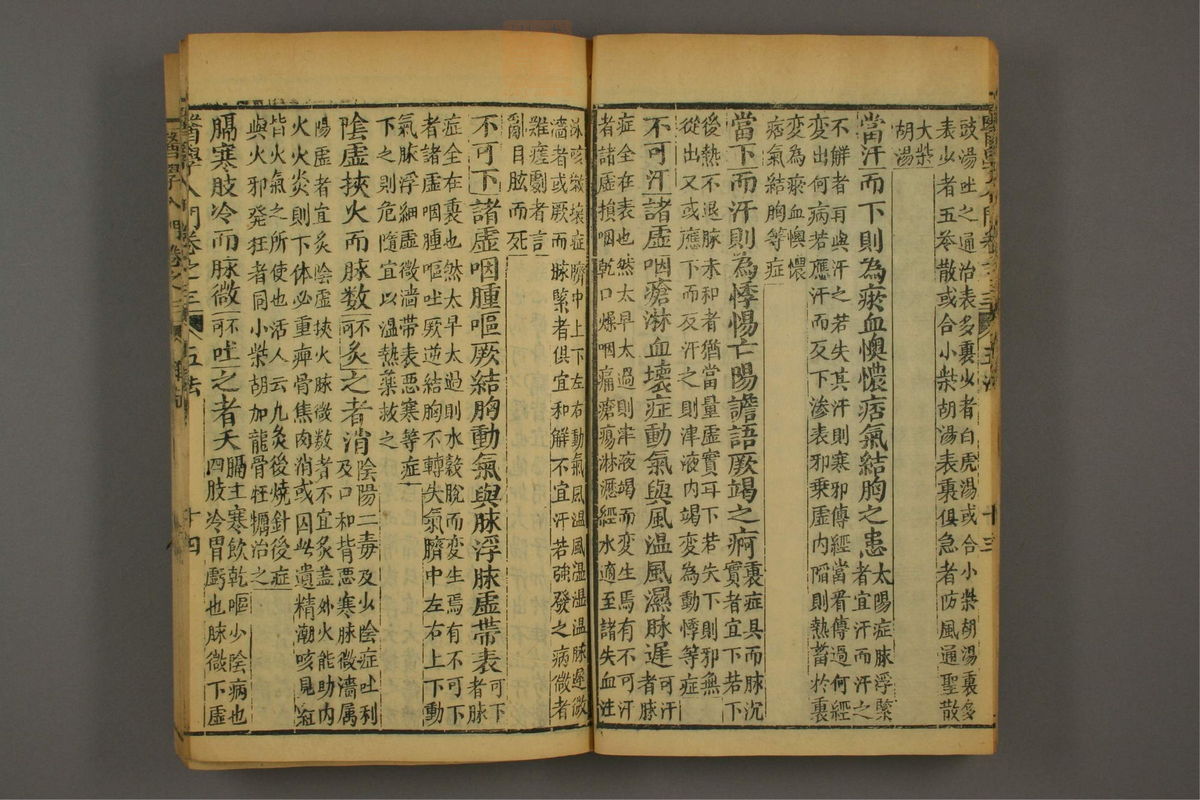 豉湯吐之通治表多裏少者白虎湯或合小柴胡湯裏多
表少者五苓散或合小柴胡湯表裏俱急者防風通聖散
大柴
胡湯
當汗而下則為瘀血懊憹痞氣結胸之患
太陽症脉浮緊
者宜汗而汗之
不解者再與汗之若失其汗則寒邪傳經當看傳過何經
變出何病若應汗而反下渗表邪乗虚内陷則熱蓄於裏
變為瘀血懊憹
痞氣結胸等症
當下而汗則為悸惕亡陽譫語厥竭之痾
裏症具而脉沉
實者宜下若下
後熱不退脉未和者猶當量虚實耳下若失下則邪無
從出又或應下而反汗之則津液内竭變為動悸等症
不可汗諸虚咽瘡淋血壞症動氣與風温風濕脉遲者
可汗
脉
症全在表也然太早太過則津液竭而変生焉有不可汗
者諸虚損咽乾口燥咽痛瘡瘍淋瀝經水適至諸失血
壞症臍中上下左右動氣風温風温温脉遲微
濇者或厥而脉緊者俱宜和解不宜汗若強發之病微者
難瘥劇者言
亂目眩而死
不可下諸虚咽腫嘔厥結胸動氣與脉浮脉虚帶表者
可下
脉
症全在裏也然大早太過則水穀脫而変生焉有不可下
者諸虚咽腫嘔吐厥逆結胸不轉失氣臍中左右上下動
氣脉浮細虚微濇帶表惡寒等症
下之則危隨宜以温熱藥救之
陰虚挾火而脉数不可灸之者消
陰陽二毒及少陰症吐利
及口和背惡寒脉微濇属
陽虚者宜灸陰虚挾火脉微数者不宜灸盖外火能助内
火火炎則下体必重痺骨焦肉消或因此遺精潮咳見
皆火氣之所使也活人云凡灸後燒針後症
與火邪発狂者同小柴胡加龍骨牡蠣治之
膈寒肢冷而脉微不可吐之者夭
膈上寒飲乾嘔少陰病也
四肢冷胃虧也脉微下虚
醫學入門卷之三
五法
十四